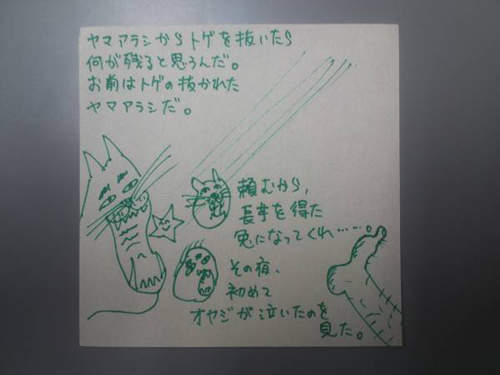 ヤマアラシからトゲを抜いたら
何が残ると思うんだ。
お前はトゲの抜かれた
ヤマアラシだ。
頼むから、
長芋を得た
兎になってくれ……。
その宿、
初めて
オヤジが泣いたのを
見た。